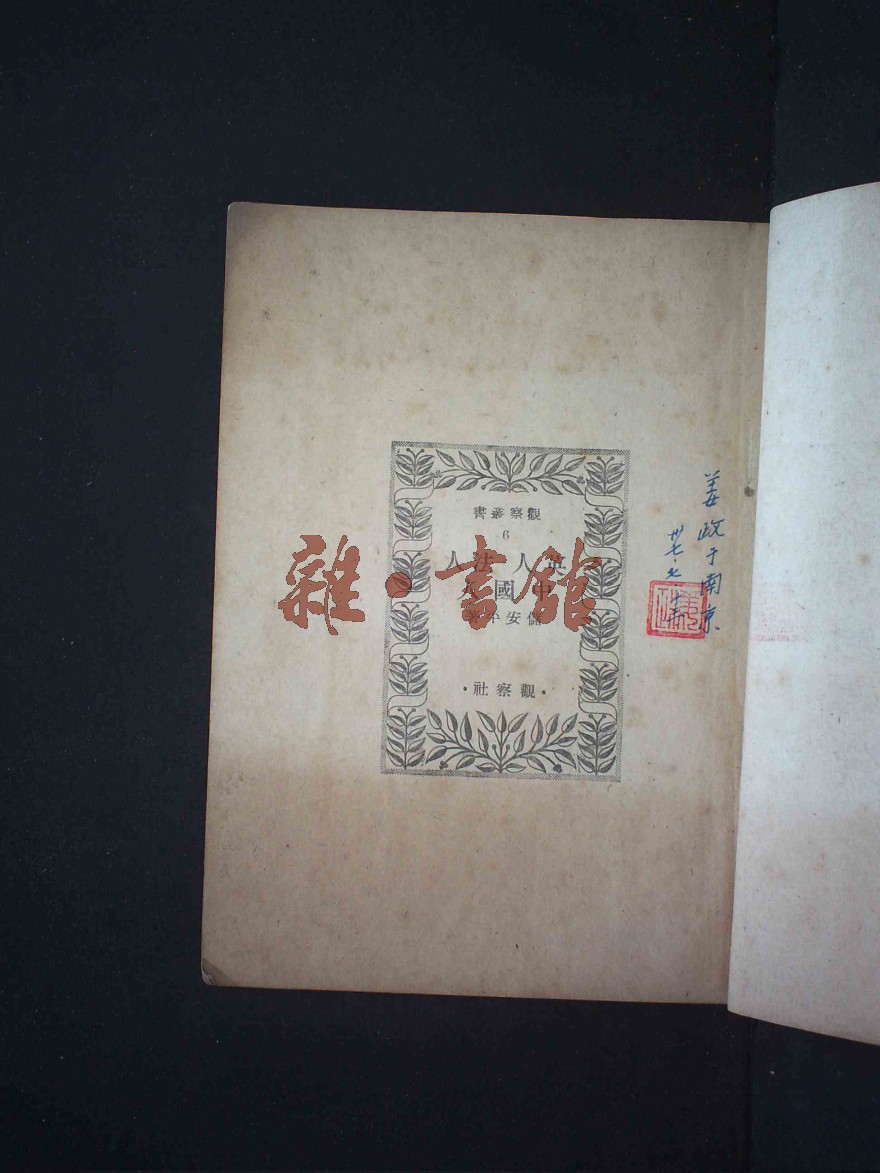 觀察叢書
6
英人 法人
中國人
儲安平著
·觀察社·
姜政于南京
卅七·七
雜·書館